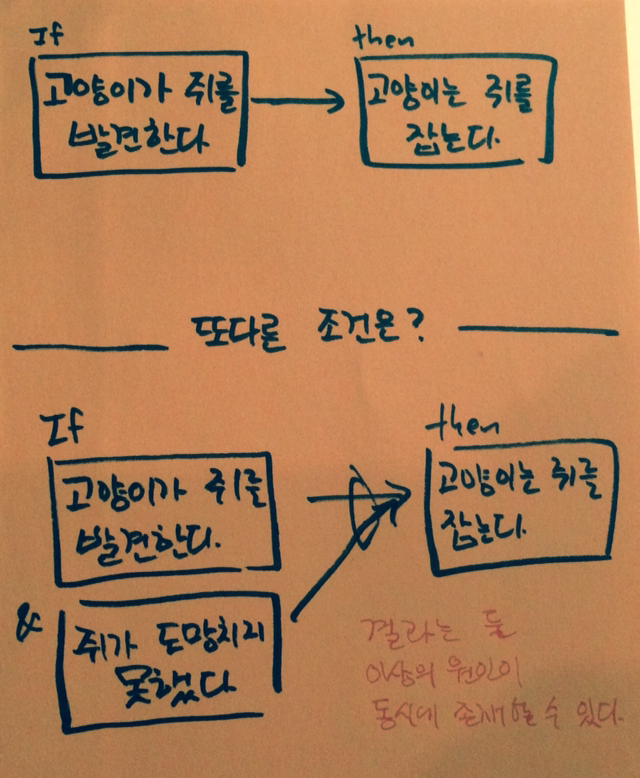 If
then
고양이가 쥐를
발견한다
고양이는 쥐를
잡는다.
또다른 조건은?
If
then
고양이가 쥐를
발견한다.
고양이는 쥐를
잡는다.
&
쥐가 도망치지
못했다
결과는 둘
이상의 원인이
동시에 존재할 수 있다.